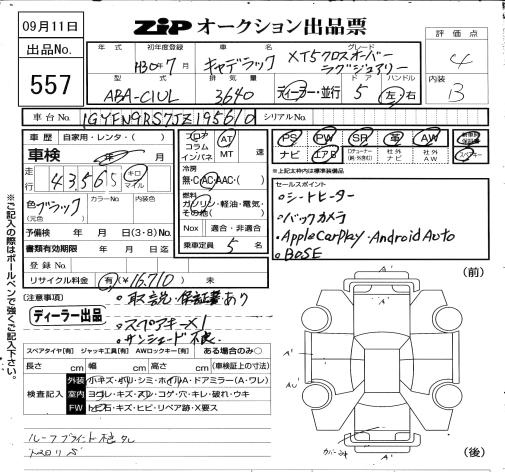 09月11日
ZiP オークション出品票
出品No.
557
年式 初年度登録 車名 グレード
H30年7月 キャデラック XT5クロスオーバー
ラグジュアリー
評価点
4
内装
B
型式 排気量 ドア ハンドル
ABA-C1UL 3640 ディーラー・並行 5 左・右
車台No. 1GYFN9RS7JZ195610 シリアルNo.
車歴 自家用・レンタ( )
車検 年 月
走行 43,565 キロ マイル
色 ブラック (元色) カラーNo. 内装色
予備検 年 月 日(3・8)No.
書類有効期限 年 月 日迄
登録No.
リサイクル料金 有(¥16,710) 未
フロア コラム インパネ
AT
MT
速
冷房
無・C・AC・AAC・( )
燃料
ガソリン・軽油・電気・
その他( )
Nox 適合・非適合
乗車定員 5 名
PS PW SR 革 AW
ナビ エアB 社外ナビ 社外AW スペアキー
※上記太枠内は標準装備品
セールスポイント
・シートヒーター
・バックカメラ
・AppleCarPlay・Android Auto
・BOSE
(注意事項)
ディーラー出品
・取説・保証書あり
・スペアキー×1
・サンシェード不良
スペアタイヤ[有] ジャッキ工具[有] AWロックキー[有] ある場合のみ○
長さ cm 幅 cm 高さ cm (車検証上の寸法)
検査記入
外装 小キズ・ボリ・シミ・ホイルA・ドアミラー(A・ワレ)
室内 ヨゴレ・キズ・スレ・コゲ・穴・キレ・破れ・ウキ
FW トビ石・キズ・ヒビ・リペア跡・X要ス
※ご記入の際はボールペンで強くご記入下さい。
(前)
A'
A'
A'
AU
カバーコスト
A'
(後)